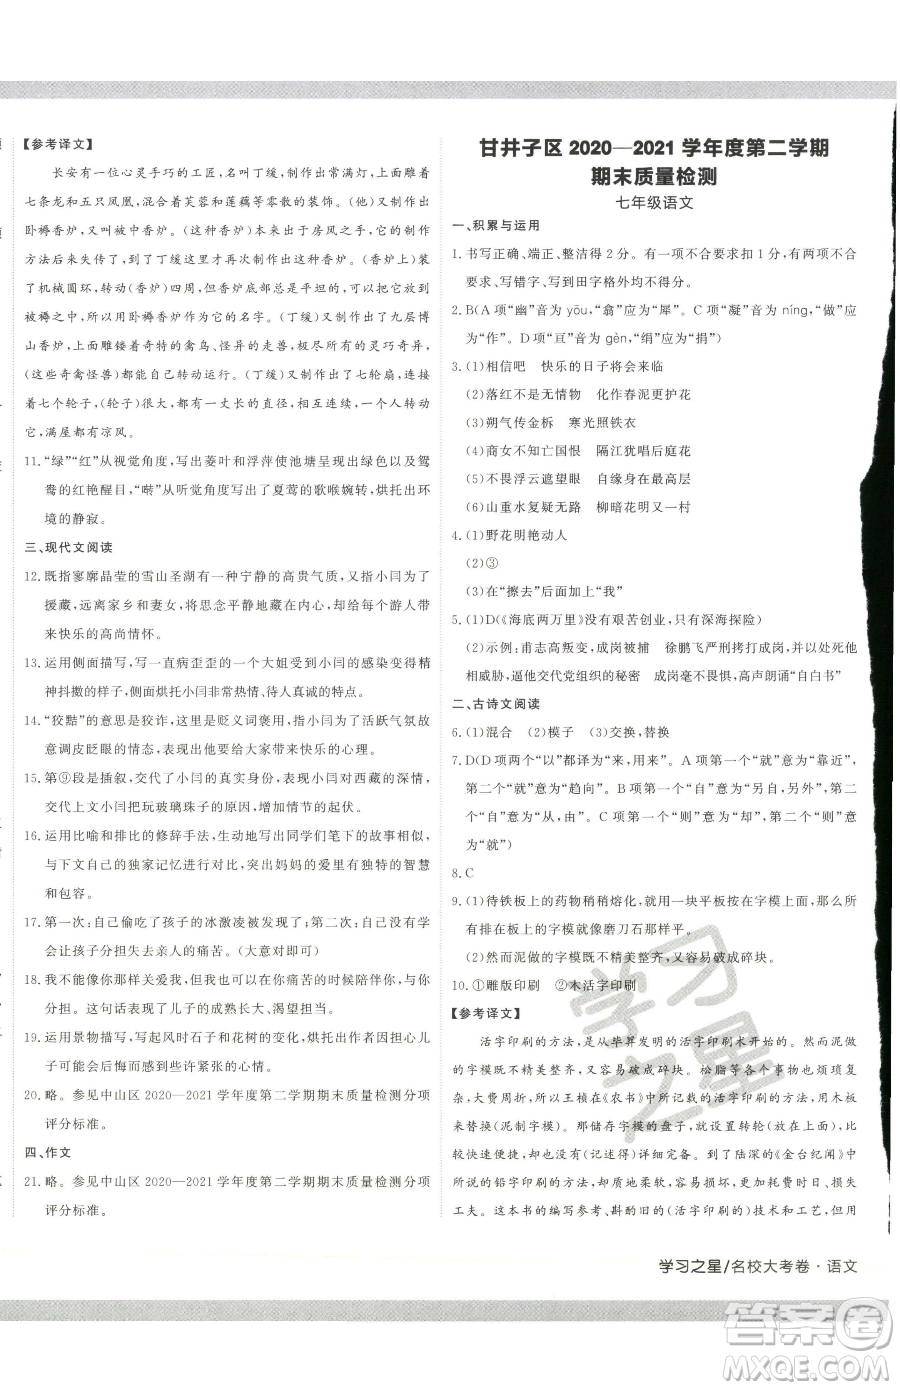 【参考译文】
长安有一位心灵手巧的工匠，名叫丁缓，制作出常满灯，上面附着
七条龙和五只凤凰，混合着芙蓉和莲藕等零散的装饰。(他)又制作出
卧褥香炉，又名被中香炉。(这种香炉)本来出于房风(之手)，制作的
方法后来失传了，直到丁缓这里才又再次开始制作。(香炉上面)装
了机械圆环，转动(香炉)四周，但是香炉却总是平坦的，可以放置在
被褥之中，所以用卧褥香炉作为它的名字。(丁缓)又制作了九层博
山香炉，上面雕镂着奇特的禽鸟、怪异的走兽，极尽所有的灵巧奇异，
(这些奇禽怪兽)全都自然转动运行。(丁缓)又制作了七轮扇，连
着七个轮子，(轮子)很大，都有一丈长的直径，互相连续，一个人转
动，满屋都有凉风。
11. “绿”“红”从视觉角度，写出菱叶和浮萍使池塘呈现出绿色以及鸳
鸯的红艳醒目，“啭”从听觉角度，写出了夏莺的歌喉婉转，烘托出环
境的静寂。
三、现代文阅读
12. 既指寥廓晶莹的雪山圣湖有一种宁静的高贵气质，又指小闫为了
援藏，远离家乡和妻女，将思念平静地藏在内心，却努力给每个游人带
来快乐的高尚情怀。
13. 运用侧面描写，写一直病歪歪的一个大姐受到小闫的感染变得精
神抖擞的样子，侧面烘托小闫非常热情、关注每一位游人的特点。
14. “狡黠”的意思是狡诈，这里是贬义词褒用，指小闫为了活跃气氛故
意调皮眨眼的情态，表现出他努力给大家带来快乐的心理。
15. 第⑨段是插叙，交代了小闫的真实身份，表现出他对西藏的深情，
交代上文中他把玩玻璃珠子的原因，增加了情节的起伏。
16. 运用比喻和排比的修辞手法，生动地写出同学们笔下的故事相似，
与下文自己的独家记忆进行对比，突出妈妈的爱里有独特的智慧
和包容。
17. 第一次：自己偷吃了孩子的冰激凌被发现；第二次：自己没有学
会让孩子分担失去亲人的痛苦。(大意对即可)
18. 我不能像你那样关爱我，但我可以在你痛苦的时候陪伴你，与你
分担。这句话表现了儿子的成熟长大、渴望担当。
19. 运用景物描写，写起风时石子和花树的变化，烘托出作者担心儿
子可能会出事时那些许紧张的心情。
20. 略。参见中山区 2020—2021 学年度第二学期期末质量检测分项
评分标准。
四、作文
21. 略。参见中山区 2020—2021 学年度第二学期期末质量检测分项
评分标准。
甘井子区 2020—2021 学年度第二学期
期末质量检测
七年级语文
一、积累与运用
1. 书写正确、端正、整洁得 2 分。有一项不合要求扣 1 分，有两项不合
要求、写错字、写到田字格外均不得分。
2. B(A 项“幽”音为 yōu，“翕”应为“犀”。C 项“凝”音为 níng，“做”应
为“作”。D 项“亘”音为 gèn，“绢”应为“捐”)
3. (1)相信吧 快乐的日子将会来临
(2)落红不是无情物 化作春泥更护花
(3)朔气传金柝 寒光照铁衣
(4)商女不知亡国恨 隔江犹唱后庭花
(5)不畏浮云遮望眼 自缘身在最高层
(6)山重水复疑无路 柳暗花明又一村
4. (1)野花明艳动人
(2)③
(3)在“擦去”后面加上“我”
5. (1)D(《海底两万里》没有艰苦创业，只有深海探险)
(2)示例：甫志高叛变，成岗被捕 徐鹏飞严刑拷打成岗，并以死
相威胁，逼他交代党组织的秘密 成岗毫不畏惧，高声朗诵“自白书”
二、古诗文阅读
6. (1)混合 (2)模子 (3)交换，替换
7. D(D 项两个“以”都译为“来，用来”。A 项第一个“就”意为“靠近”，
第二个“就”意为“趋向”。B项第一个“自”意为“另自，另外”，第二
个“自”意为“从，由”。C 项第一个“则”意为“却”，第二个“则”意
为“就”)
8. C
9. (1)待铁板上的药物稍稍熔化，就用一块平板按在字模上，(这样)
铁板上的字模就像磨刀石那样平。
(2)然而泥做的字模既不精美整齐，又容易变成碎块。
10. ①雕版印刷 ②木活字印刷
【参考译文】
活字印刷的方法，是从毕昇发明的活字印刷术开始的，而泥做
的字模既不精美整齐，又容易变成碎块。松脂等各种药剂的成本
很大，花费很多。所以王桢在《农书》中所记载的活字印刷的方法
换成了(泥制字模)。那储存字模的盘子，就设置转轮(放置)，以便
寻字，比之前的方法(记述得)更周详完备。至于陆深的《金台纪闻》中记
述的铅字印刷的方法，则是因为铅的质地柔软，容易磨损，损失
太大。这本书的编写参考、斟酌旧的(活字印刷的)技术和工艺，但用
学习之星
学习之星/名校大考卷·语文
答案圈
MXQE.COM